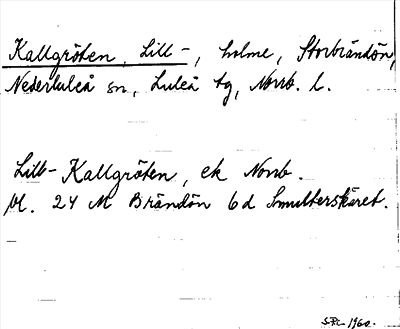 Kallgröten, Lill-, holme, Storbrändön,
Nederluleå sn, Luleå tg, Norrb. l.
Lill-Kallgröten, ek Norrb.
bl. 24 M Brändön 6 d Smulterskäret.
1960.